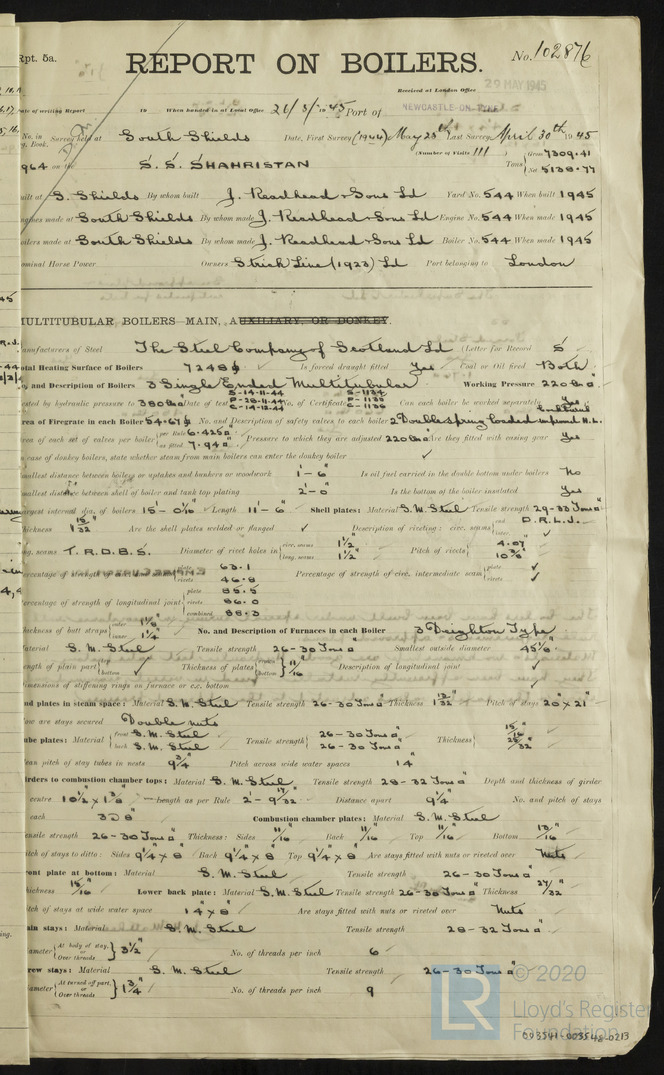 Rpt. 5a.
REPORT ON BOILERS.
No. 102876
Received at London Office
29 MAY 1945
Date of writing Report 19 When handed in at Local Office 26/5/1945 Port of NEWCASTLE-ON-TYNE
No. in Survey held at South Shields Date, First Survey (1944) May 25th Last Survey April 30th 1945
g. Book.
(Number of Visits 111)
964 on the S. S. SHAHRISTAN Tons { Gross 7309.41
Net 5138.77
uilt at S. Shields By whom built J. Readhead & Sons Ld Yard No. 544 When built 1945
ngines made at South Shields By whom made J. Readhead & Sons Ld Engine No. 544 When made 1945
oilers made at South Shields By whom made J. Readhead & Sons Ld Boiler No. 544 When made 1945
ominal Horse Power Owners Strick Line (1923) Ld Port belonging to London
MULTITUBULAR BOILERS MAIN, AUXILIARY, OR DONKEY.
anufacturers of Steel The Steel Company of Scotland Ld (Letter for Record S
otal Heating Surface of Boilers 7248 Is forced draught fitted Yes Coal or Oil fired Both
and Description of Boilers 3 Single Ended Multitubular Working Pressure 220
S-14-11-44 S-1134
ested by hydraulic pressure to 380 Date of test P-20-11-44 No. of Certificate P-1135 Can each boiler be worked separately Yes
C-14-12-44 C-1136
rea of Firegrate in each Boiler 54.67 No. and Description of safety valves to each boiler 2 Double spring loaded H.L.
rea of each set of valves per boiler { per Rule 6.425
as fitted 7.94 Pressure to which they are adjusted 220 Are they fitted with easing gear Yes
case of donkey boilers, state whether steam from main boilers can enter the donkey boiler ✓
mallest distance between boilers or uptakes and bunkers or woodwork 1'-6" Is oil fuel carried in the double bottom under boilers No
mallest distance between shell of boiler and tank top plating 2'-0" Is the bottom of the boiler insulated Yes
argest internal dia. of boilers 15'-0 1/16" Length 11'-6" Shell plates: Material S.M. Steel Tensile strength 29-33 Tons
hickness 1 15/32" Are the shell plates welded or flanged ✓ Description of riveting: circ. seams { end D.R.L.J.
inter. ✓
ng. seams T.R.D.B.S. Diameter of rivet holes in { circ. seams 1 1/2"
long. seams 1 1/2" Pitch of rivets { 4.07
10 3/8"
ercentage of strength of circ. end seams { plate 63.1
rivets 46.8 Percentage of strength of circ. intermediate seam { plate ✓
rivets ✓
ercentage of strength of longitudinal joint { plate 85.5
rivets 86.0
combined 88.3
hickness of butt straps { outer 1 1/8"
inner 1 1/4" No. and Description of Furnaces in each Boiler 3 Deighton Type
aterial S.M. Steel Tensile strength 26-30 Tons Smallest outside diameter 45 1/8"
ength of plain part { top
bottom ✓ Thickness of plates { crown
bottom } 11/16" Description of longitudinal joint ✓
imensions of stiffening rings on furnace or c.c. bottom ✓
nd plates in steam space: Material S.M. Steel Tensile strength 26-30 Tons Thickness 1 12/32" Pitch of stays 20" x 21"
ow are stays secured Double nuts
ube plates: Material { front S.M. Steel
back S.M. Steel Tensile strength { 26-30 Tons
26-30 Tons Thickness { 15/16"
25/32"
ean pitch of stay tubes in nests 9 3/4" Pitch across wide water spaces 14"
irders to combustion chamber tops: Material S.M. Steel Tensile strength 28-32 Tons Depth and thickness of girder
centre 10 1/2" x 1 3/8" Length as per Rule 2'-9 17/32" Distance apart 9 1/4" No. and pitch of stays
each 3 @ 8" Combustion chamber plates: Material S.M. Steel
ensile strength 26-30 Tons Thickness: Sides 11/16" Back 11/16" Top 11/16" Bottom 13/16"
itch of stays to ditto: Sides 9 1/4" x 8" Back 9 1/4" x 8" Top 9 1/4" x 8" Are stays fitted with nuts or riveted over Nuts
ront plate at bottom: Material S.M. Steel Tensile strength 26-30 Tons
hickness 15/16" Lower back plate: Material S.M. Steel Tensile strength 26-30 Tons Thickness 27/32"
itch of stays at wide water space 14" x 8" Are stays fitted with nuts or riveted over Nuts
ain stays: Material S.M. Steel Tensile strength 28-32 Tons
iameter { At body of stay, or Over threads } 3 1/2" No. of threads per inch 6
crew stays: Material S.M. Steel Tensile strength 26-30 Tons
iameter { At turned off part, or Over threads } 1 3/4" No. of threads per inch 9
LR
© 2020
Lloyd's Register
Foundation
003541-003548-0213